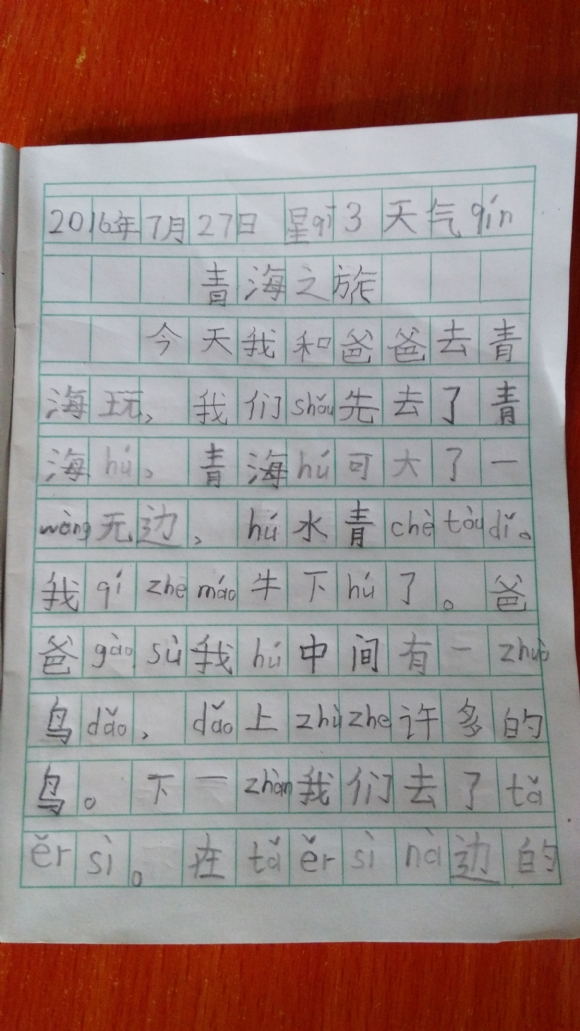 2016年7月27日 星qī3 天气qín
青海之旅
今天我和爸爸去青
海玩，我们shǒu先去了青
海hú。青海hú可大了一
wàng无边，hú水青chè tòu dǐ。
我qí zhe máo牛下hú了。爸
爸gào sù我hú中间有一zhuò
鸟dǎo，dǎo上zhù zhe许多的
鸟。下一zhàn我们去了tǎ
ěr sì。在tǎ ěr sì nà边的